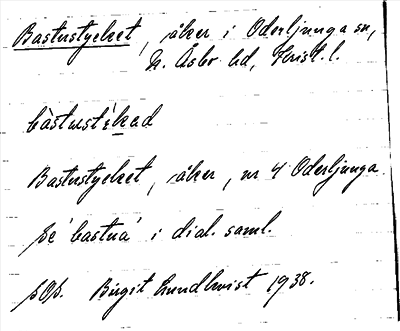 Bastustycket, åker i Oderljunga sn,
N. Åsbo hd, Krist. l.
Bastustycket, åker, nr 4 Oderljunga.
se 'bastua' i dial. saml.
Birgit Lundkvist 1938.